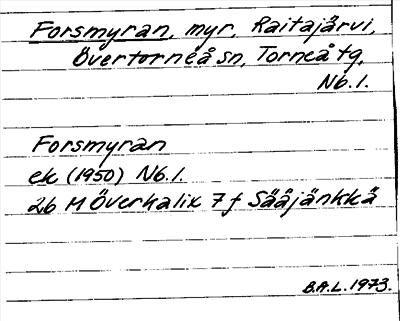 Forsmyran, myr, Raitajärvi,
Övertorneå sn, Torneå tg,
Nb.l.
Forsmyran
ek (1950) Nb.l.
26 M Överkalix 7 f Sääjänkkä
B.A.L. 1973.